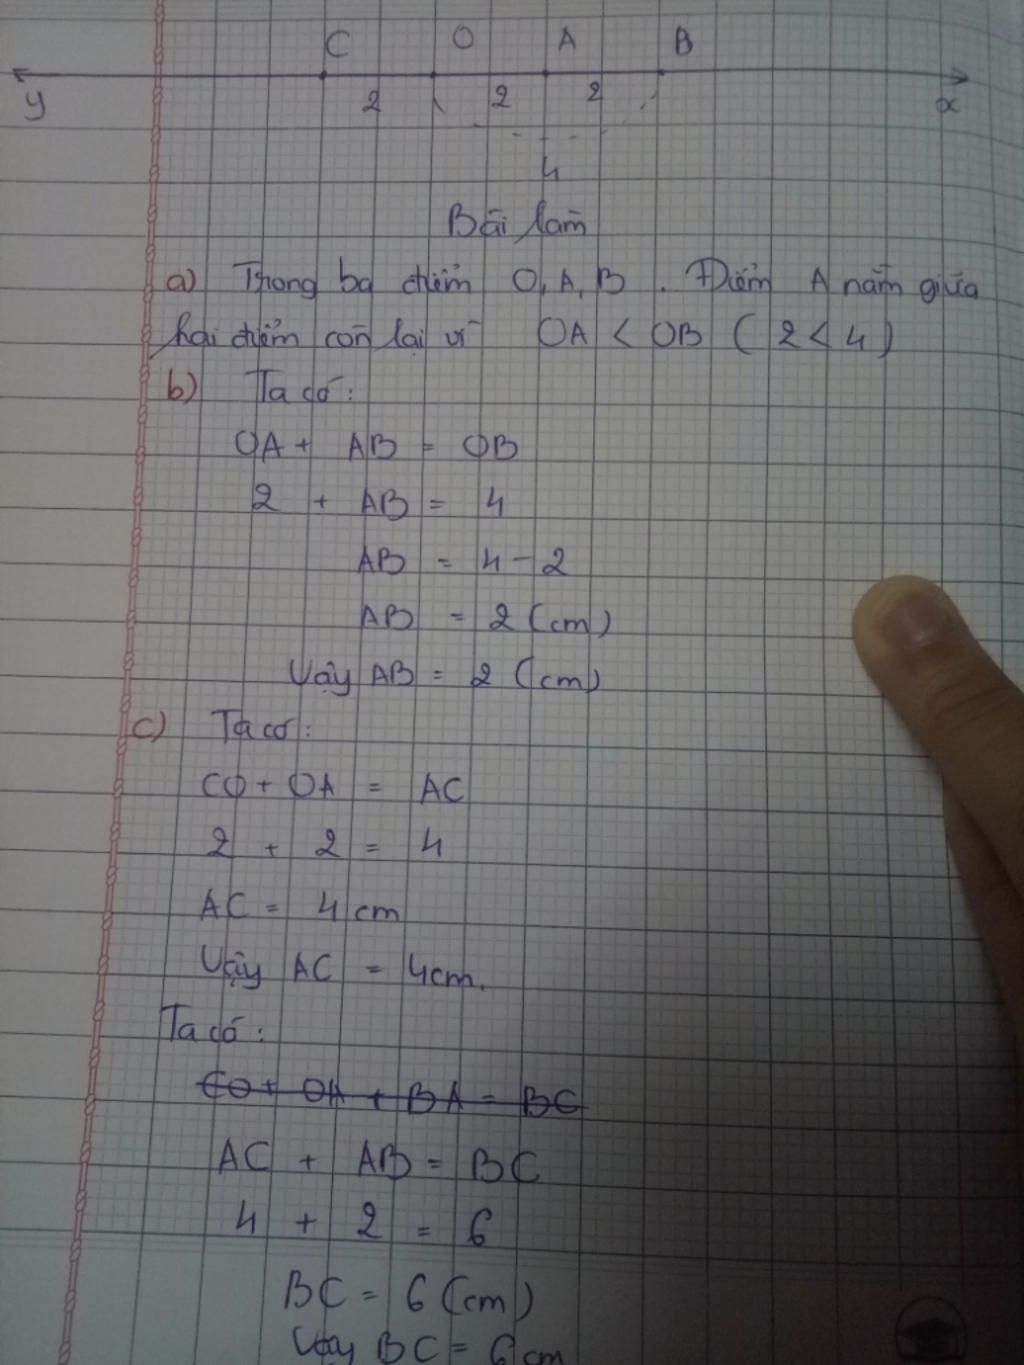 C O A B
y 2 2 2 x
4
Bài làm
a) Trong ba điểm O, A, B . Điểm A nằm giữa
hai điểm còn lại vì OA < OB ( 2 < 4 )
b) Ta có :
OA + AB = OB
2 + AB = 4
AB = 4 - 2
AB = 2 (cm)
Vậy AB = 2 (cm)
c) Ta có :
CO + OA = AC
2 + 2 = 4
AC = 4 cm
Vậy AC = 4cm.
Ta có :
CO + OA + BA = BC
AC + AB = BC
4 + 2 = 6
BC = 6 (cm)
Vậy BC = 6 cm